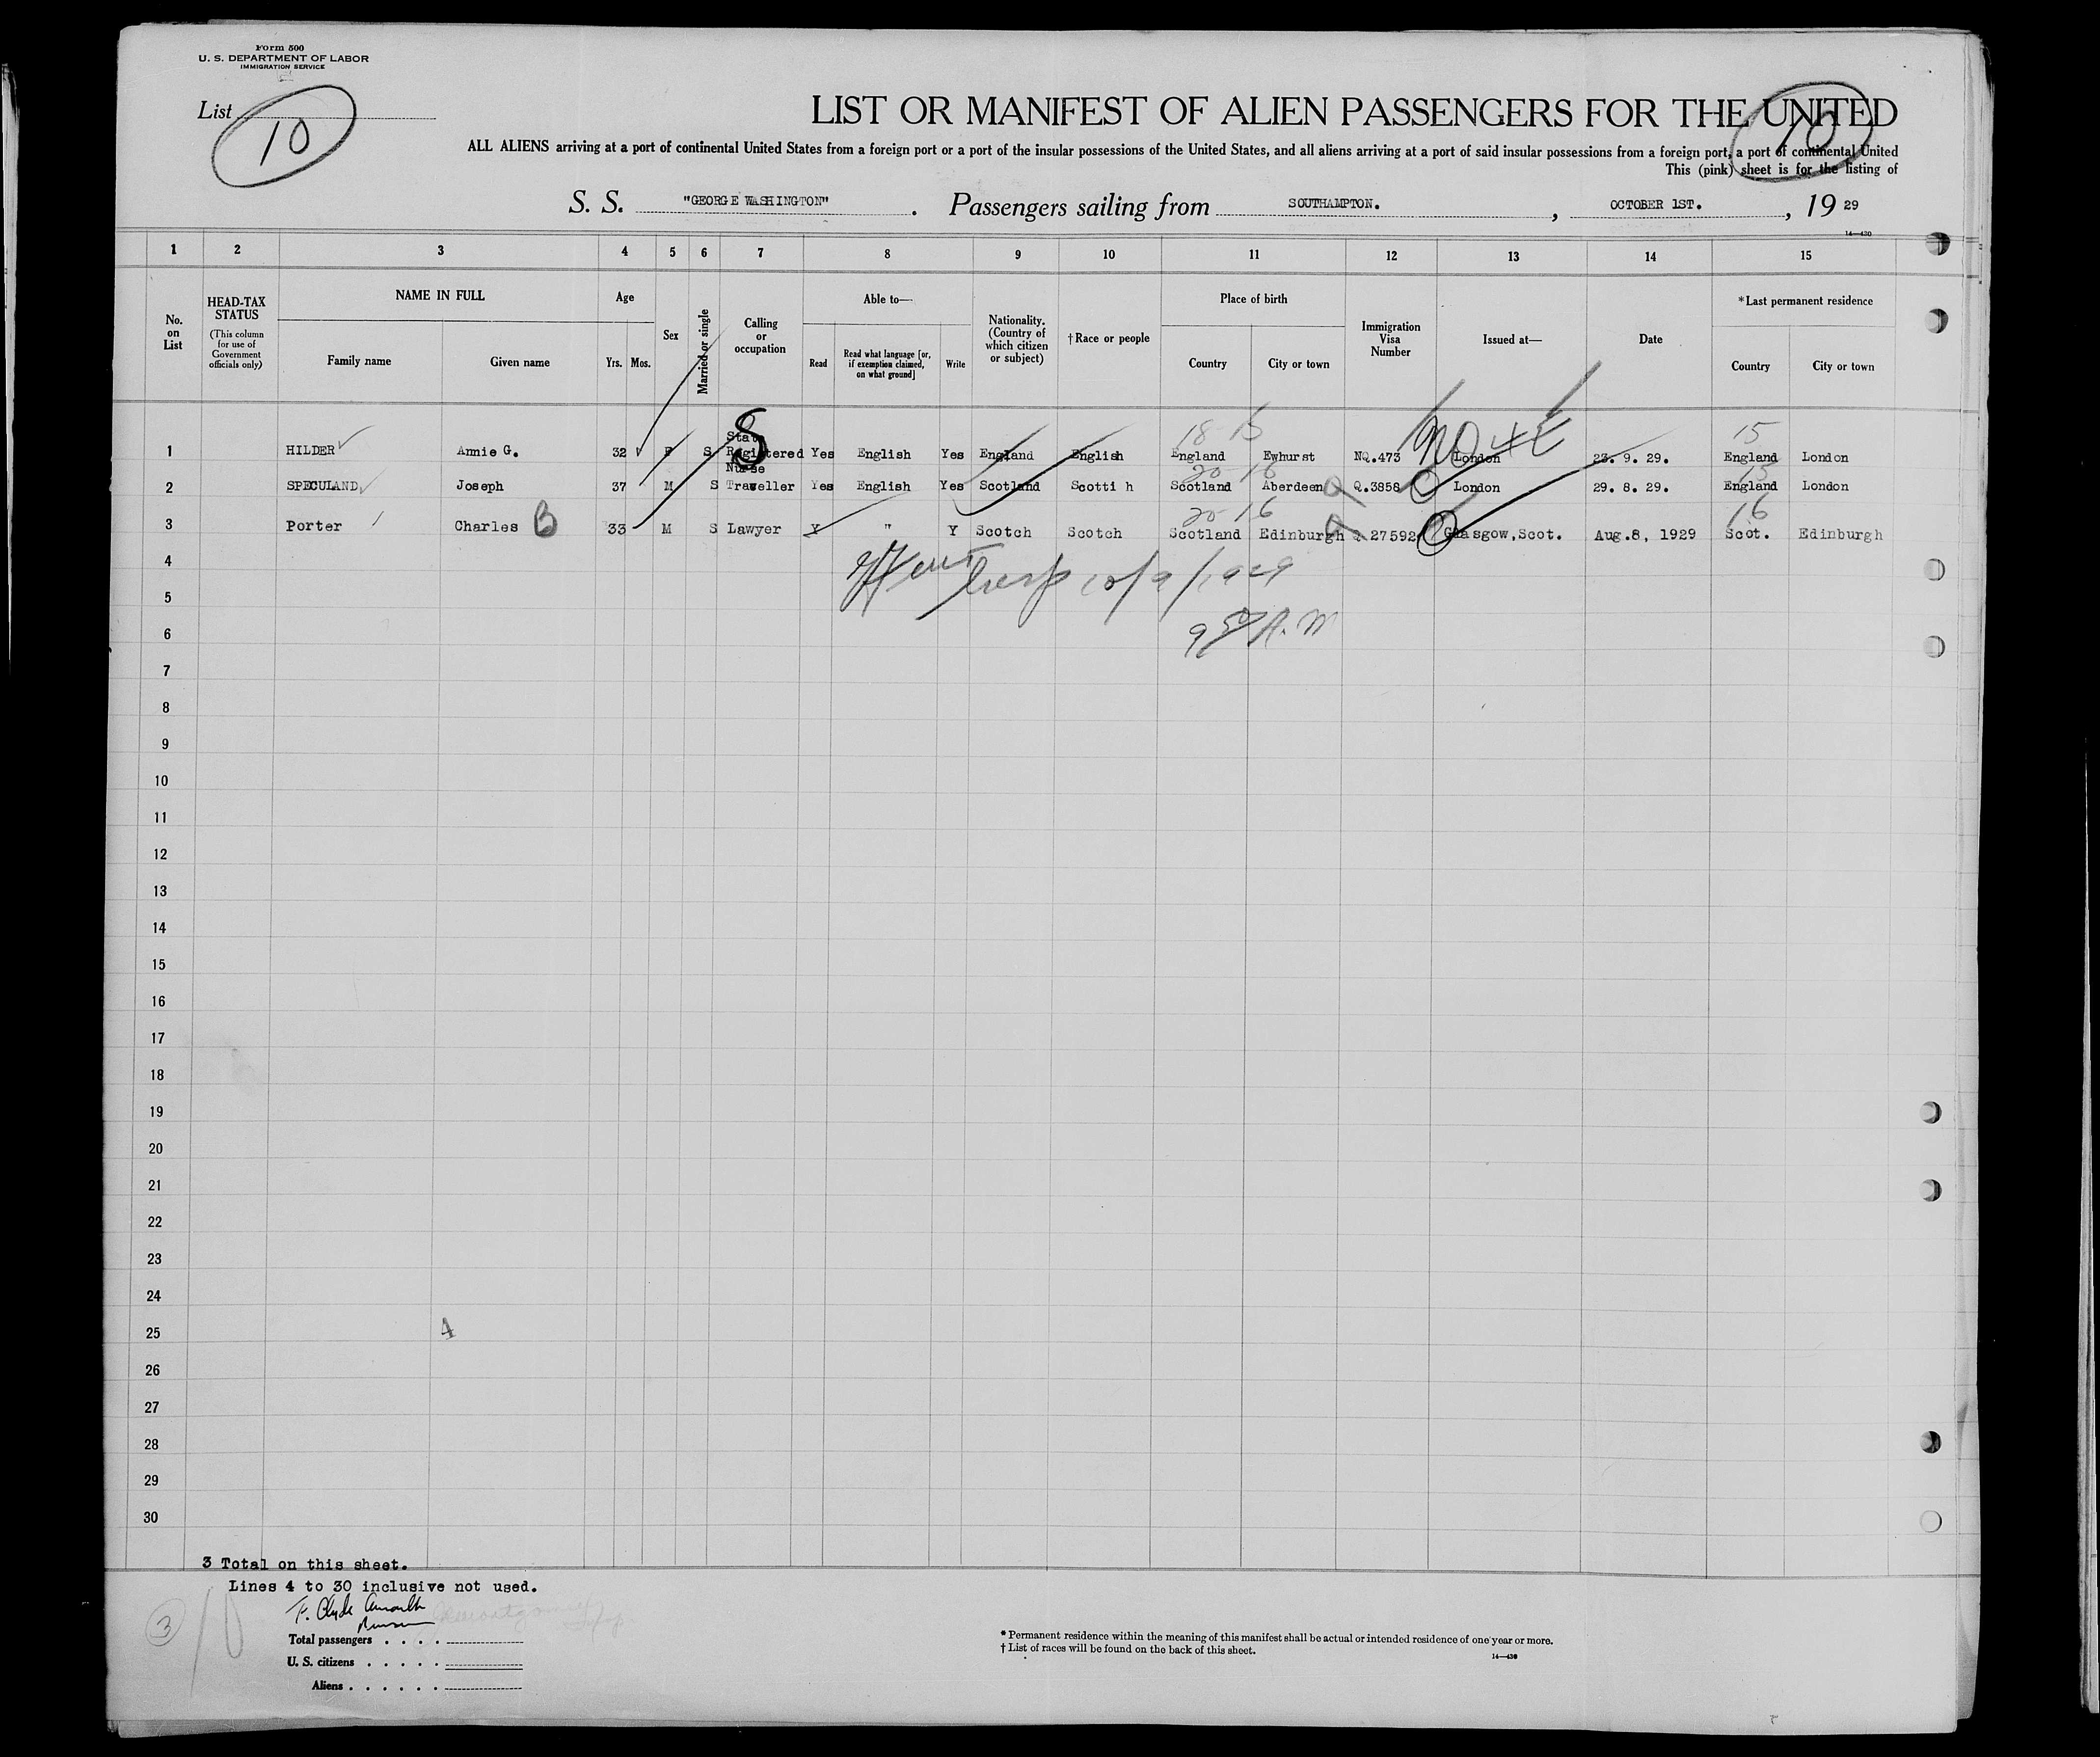 Form 500
U. S. DEPARTMENT OF LABOR
IMMIGRATION SERVICE
List 10
LIST OR MANIFEST OF ALIEN PASSENGERS FOR THE UNITED
10
ALL ALIENS arriving at a port of continental United States from a foreign port or a port of the insular possessions of the United States, and all aliens arriving at a port of said insular possessions from a foreign port, a port of continental United
This (pink) sheet is for the listing of
S. S. "GEORGE WASHINGTON". Passengers sailing from SOUTHAMPTON., OCTOBER 1ST., 19 29
14—430
1 2 3 4 5 6 7 8 9 10 11 12 13 14 15
No. on List
HEAD-TAX STATUS
(This column for use of Government officials only)
NAME IN FULL
Family name Given name
Age
Yrs. Mos.
Sex
Married or single
Calling or occupation
Able to—
Read
Read what language [or, if exemption claimed, on what ground]
Write
Nationality. (Country of which citizen or subject)
†Race or people
Place of birth
Country City or town
Immigration Visa Number
Issued at—
Date
*Last permanent residence
Country City or town
18 15 15
1 HILDER Annie G. 32 F S State Registered Nurse Yes English Yes England English England Ewhurst NQ.473 London 23. 9. 29. England London
S
20 16 15
2 SPECULAND Joseph 37 M S Traveller Yes English Yes Scotland Scotti h Scotland Aberdeen Q.3858 London 29. 8. 29. England London
20 16 16
3 Porter Charles B 33 M S Lawyer Y " Y Scotch Scotch Scotland Edinburgh Q 27592 Glasgow,Scot. Aug.8, 1929 Scot. Edinburgh
4
10/9/1929
5
9 50 A.M
6
7
8
9
10
11
12
13
14
15
16
17
18
19
20
21
22
23
24
25 4
26
27
28
29
30
3 Total on this sheet.
Lines 4 to 30 inclusive not used.
3 10
Total passengers . . . .
U. S. citizens . . . . .
Aliens . . . . . .
* Permanent residence within the meaning of this manifest shall be actual or intended residence of one year or more.
† List of races will be found on the back of this sheet.
14—430